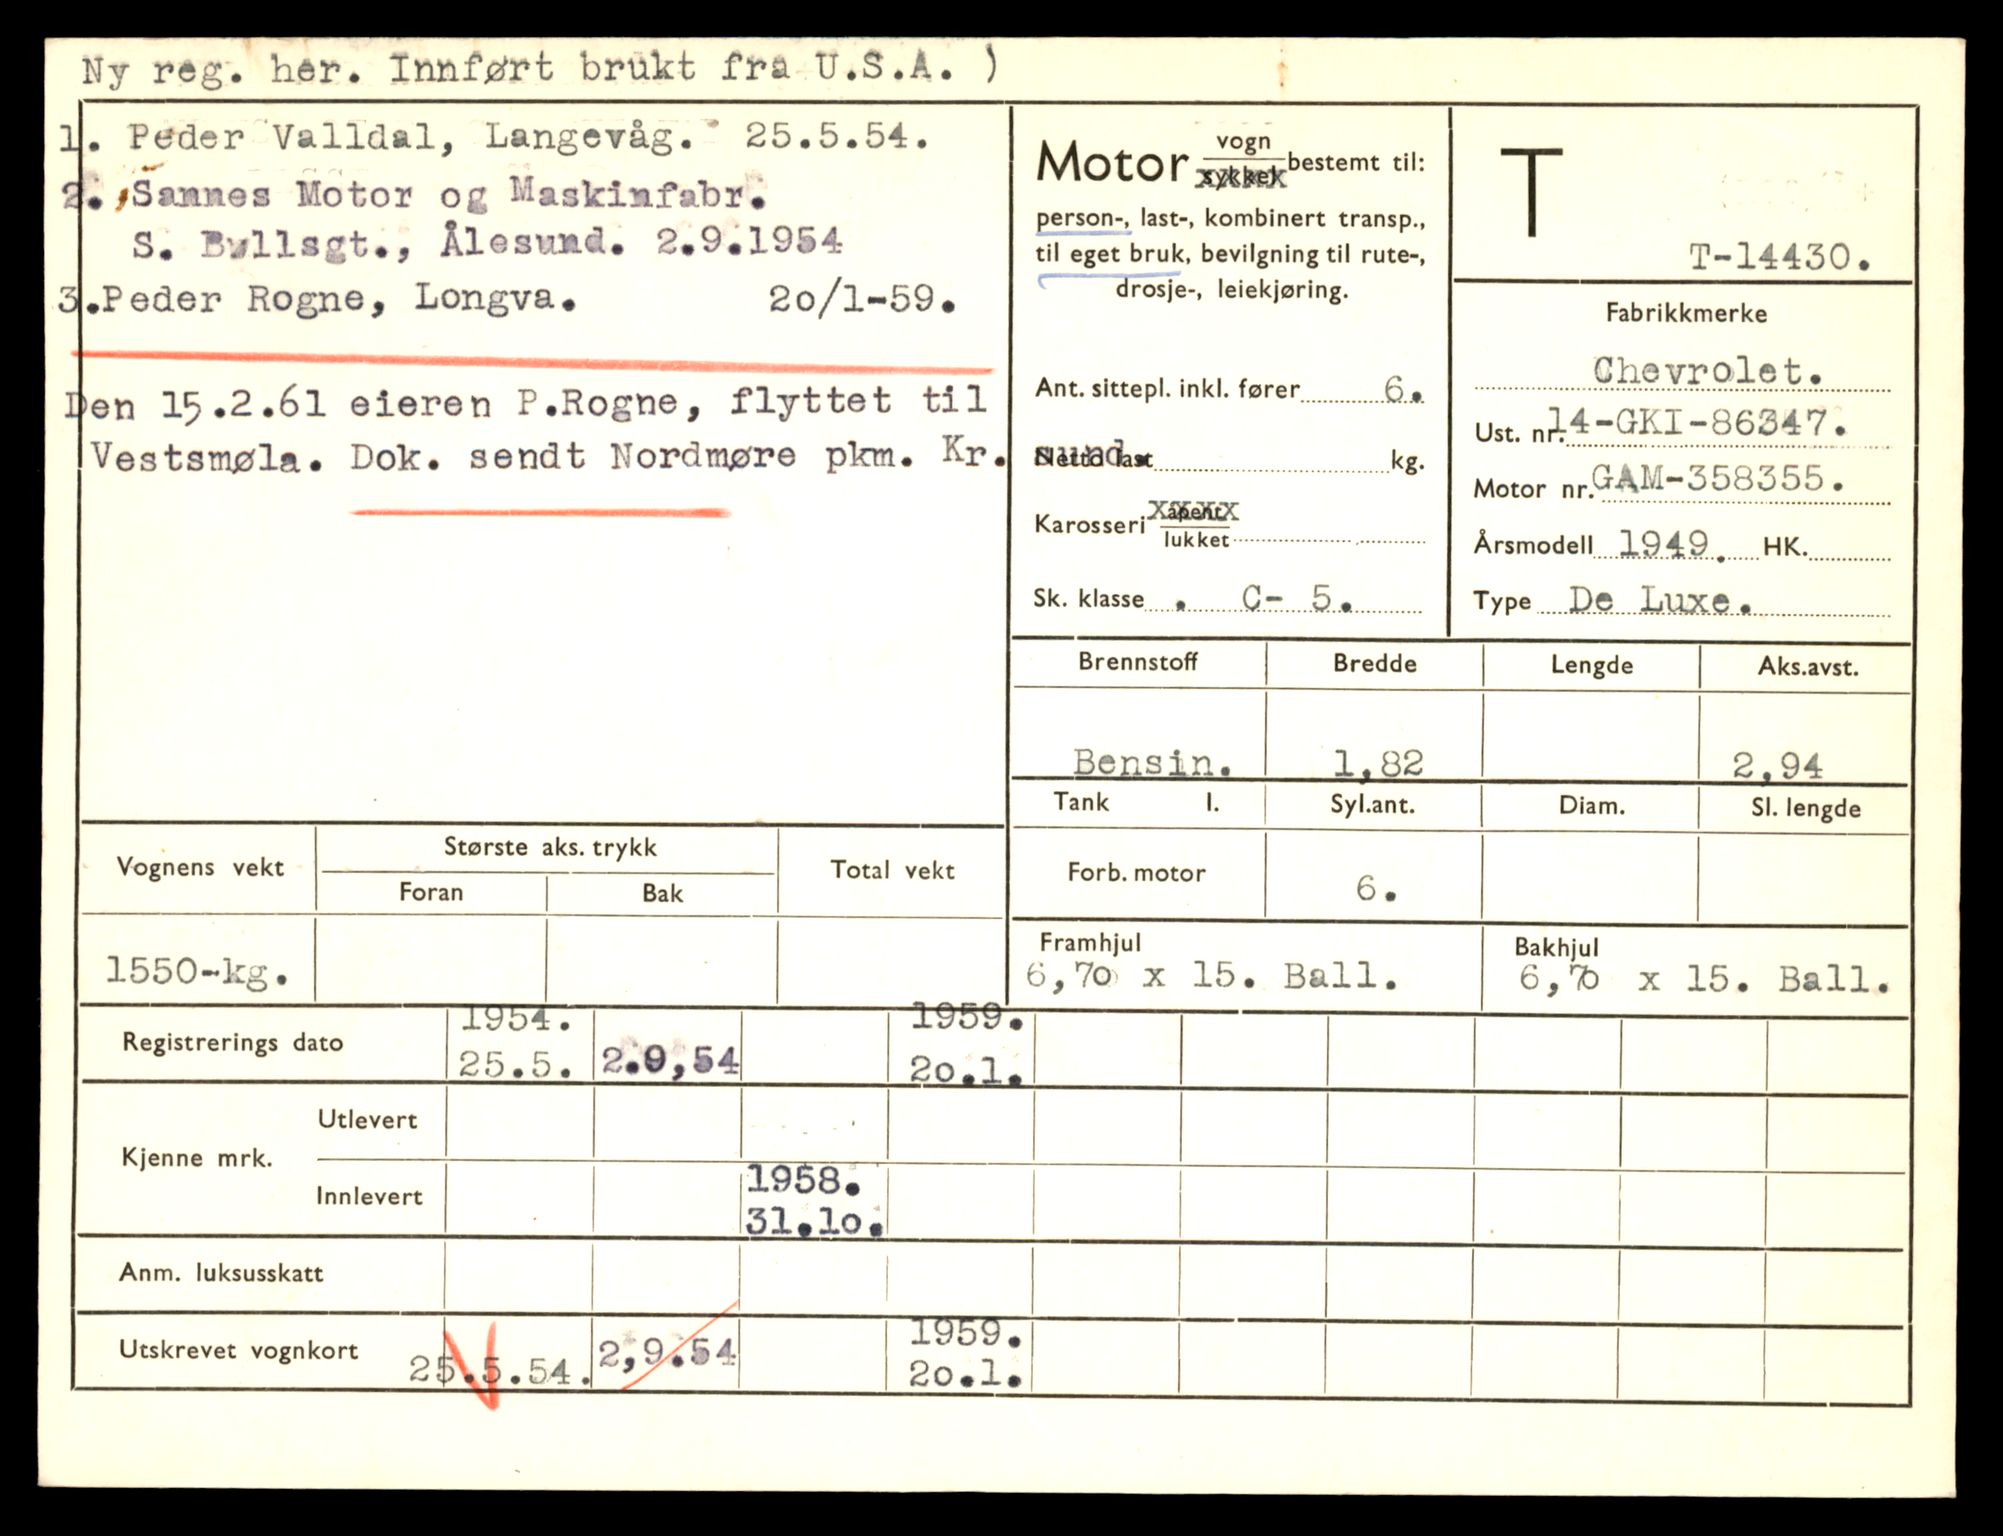 Ny reg. her. Innført brukt fra U.S.A. )
1. Peder Valldal, Langevåg. 25.5.54.
2. Sannes Motor og Maskinfabr.
S. Bullsgt., Ålesund. 2.9.1954
3.Peder Rogne, Longva. 20/1-59.
Den 15.2.61 eieren P.Rogne, flyttet til
Vestsmøla. Dok. sendt Nordmøre pkm. Kr. sund.
Motor vogn
sykkel bestemt til:
person-, last-, kombinert transp.,
til eget bruk, bevilgning til rute-,
drosje-, leiekjøring.
Ant. sittepl. inkl. fører 6.
Netto last kg.
Karosseri åpent
lukket
Sk. klasse . C- 5.
T
T-14430.
Fabrikkmerke
Chevrolet.
Ust. nr. 14-GKI-86347.
Motor nr. GAM-358355.
Årsmodell 1949. HK.
Type De Luxe.
Brennstoff Bredde Lengde Aks.avst.
Bensin. 1,82 2,94
Tank l. Syl.ant. Diam. Sl. lengde
Forb. motor 6.
Framhjul Bakhjul
6,70 x 15. Ball. 6,70 x 15. Ball.
Vognens vekt Største aks. trykk Total vekt
Foran Bak
1550-kg.
1954. 1959.
Registrerings dato 25.5. 2.9,54 20.1.
Kjenne mrk. Utlevert
Innlevert 1958.
31.10.
Anm. luksusskatt
Utskrevet vognkort 25.5.54. 2,9.54 1959.
20.1.